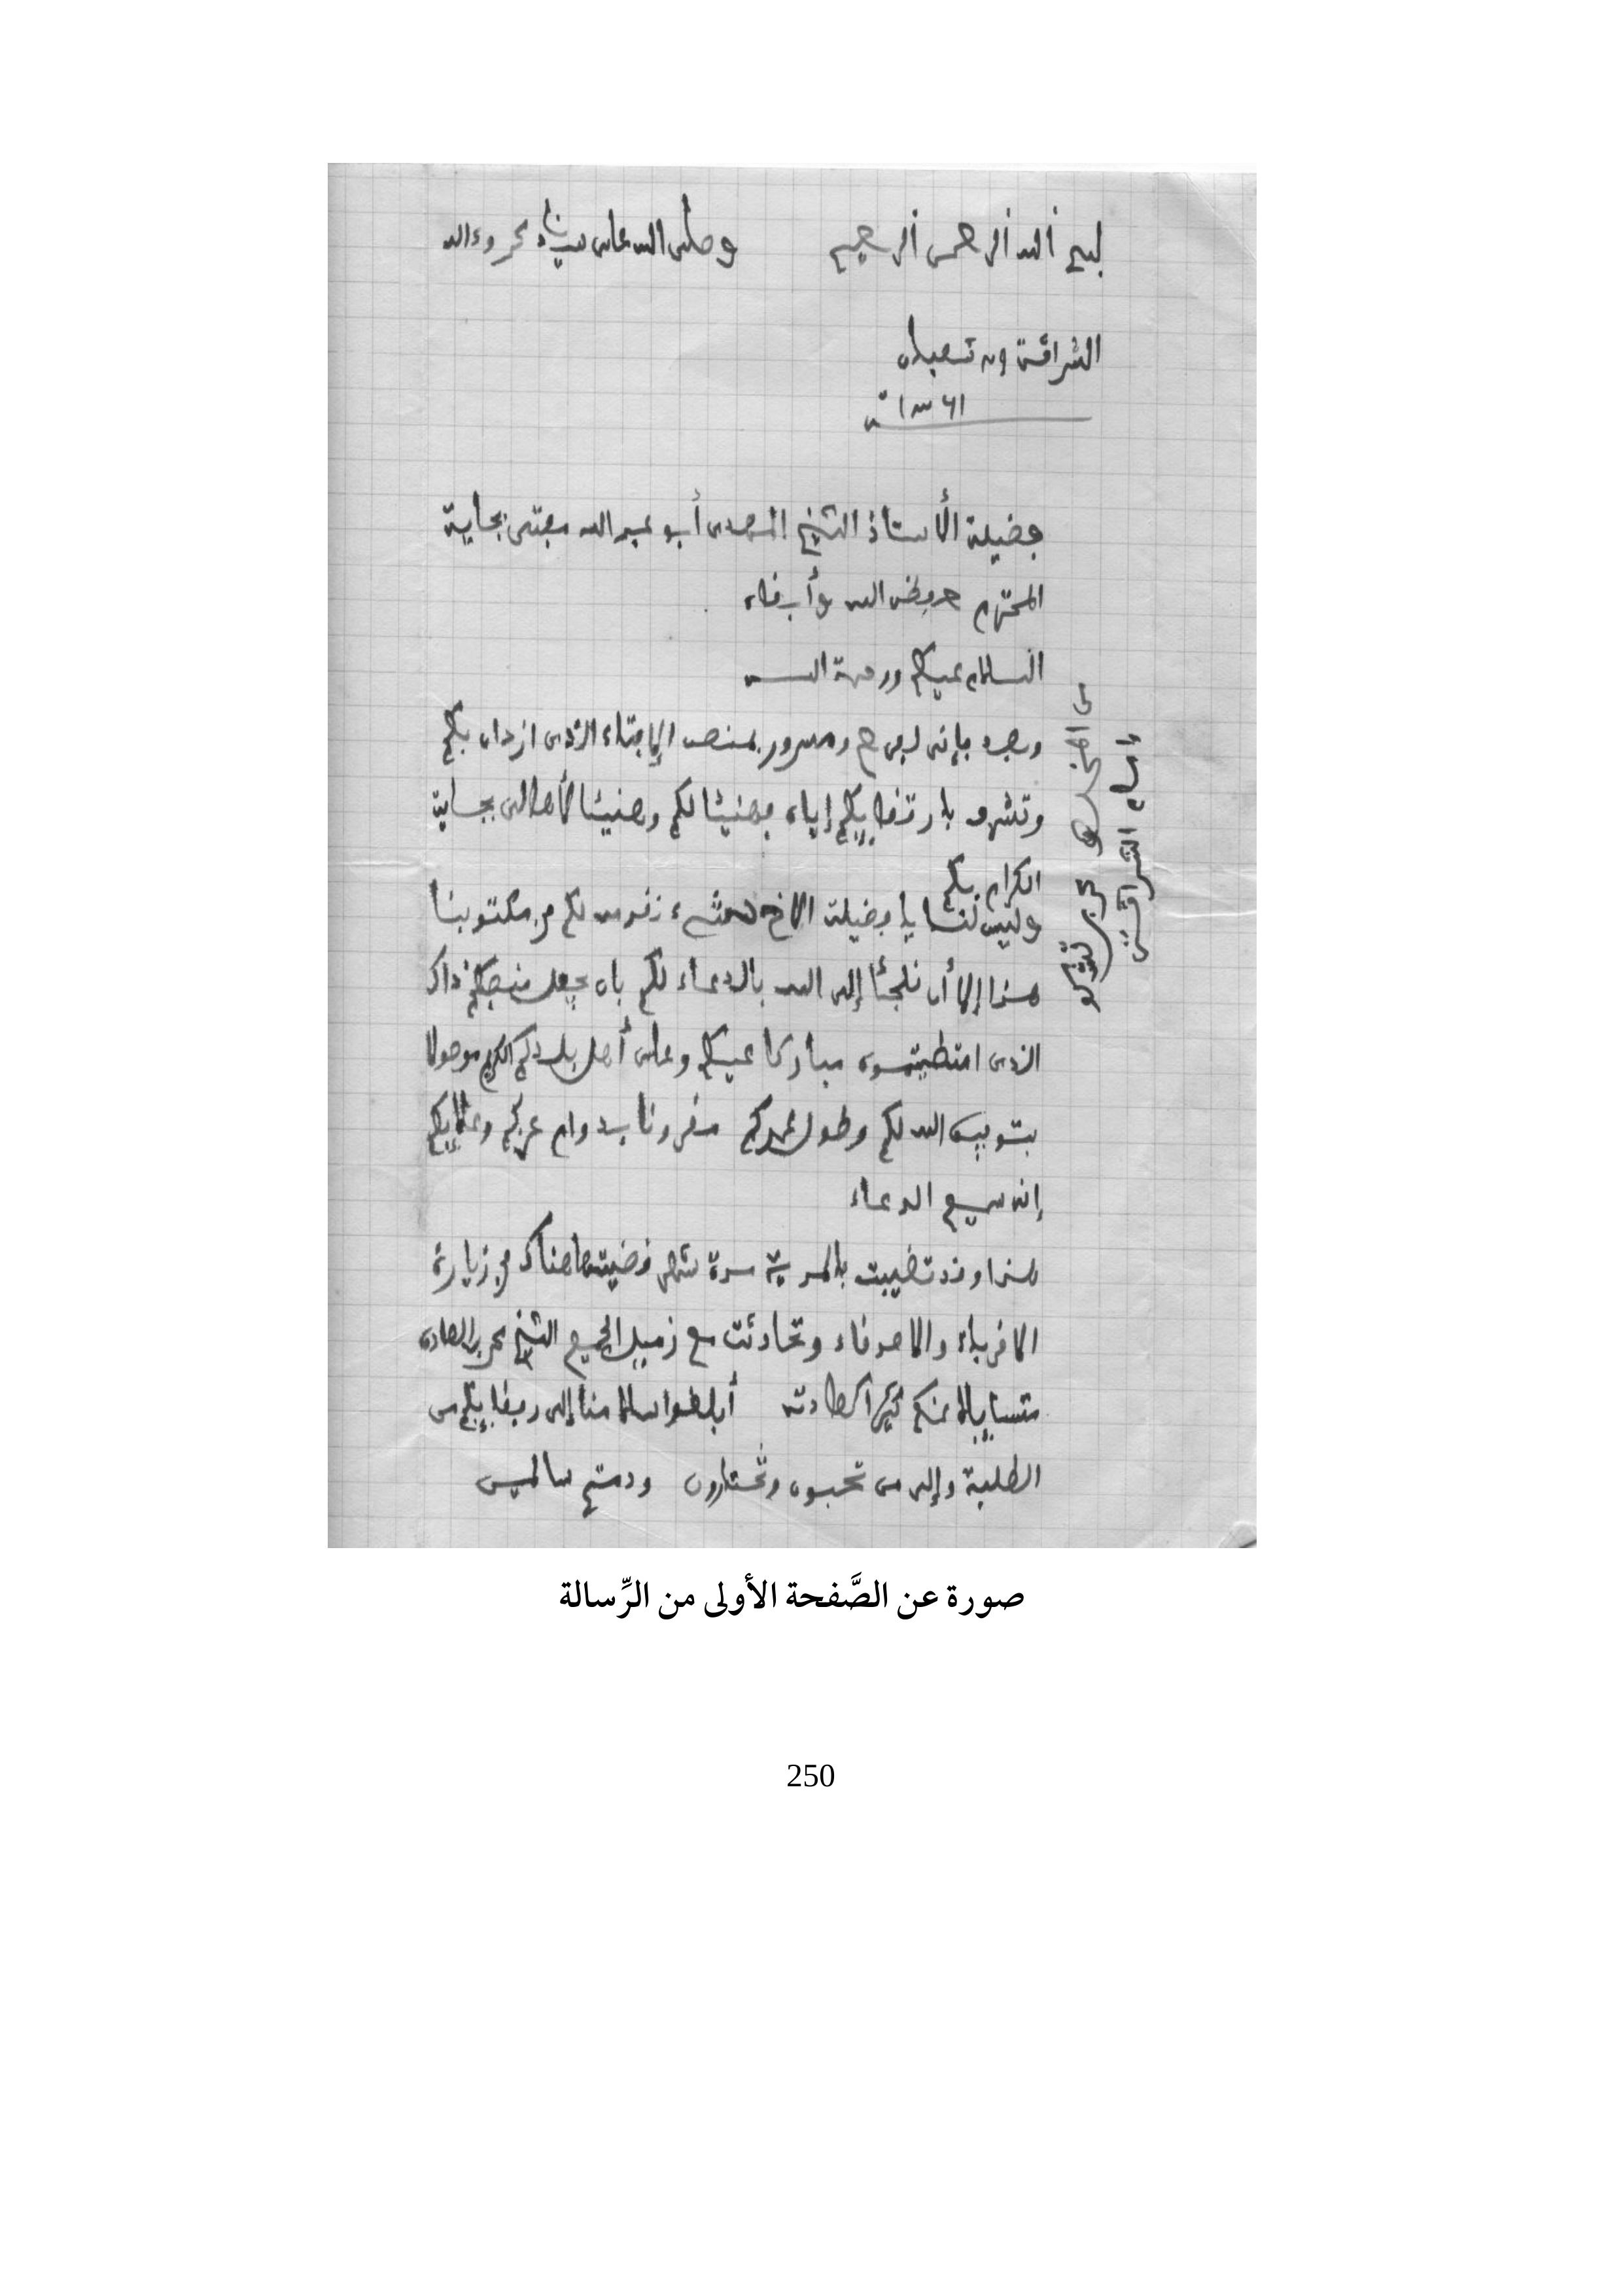 بسم الله الرحمن الرحيم وصلى الله على سيدنا محمد وءاله
الشراقة
فضيلة الأستاذ الشيخ المهدي أبو عبد الله مفتي بجاية
المحترم حفظه الله وأبقاه
السلام عليكم ورحمة الله
وبعد فإني لفي فرح وسرور بمنصب الإفتاء الذي ازدان بكم
وتشرف بارتقايكم إياه فهنيئا لكم وهنيئا لأهالي بجاية
الكرام بكم
وليس لنا يا فضيلة الاخ شيء نقدمه لكم في مكتوبنا
هذا إلا أن نلجئا إلى الله بالدعاء لكم بان يجعل منصبكم ذاك
الذي امتطيتموه مباركا عليكم وعلى أهل بلدكم الكريم موصولا
بتوفيق الله لكم وطول عمركم مقرونا بدوام عزكم وعلايكم
إنه سميع الدعاء
هذا وقد تغيبت بالمدية مدة شهر قضيتها هناك في زيارة
الاقرباء والاصدقاء وتحادثت مع زميل الجميع الشيخ محمد
متسايلا عنكم كثيرا كعادته أبلغوا سلامنا إلى رفقايكم من
الطلبة وإلى من تحبون وتختارون ودمتم سالمين
من المخلص
إمام الشراقة
صورة عن الصَّفحة الأولى من الرِّسالة
250